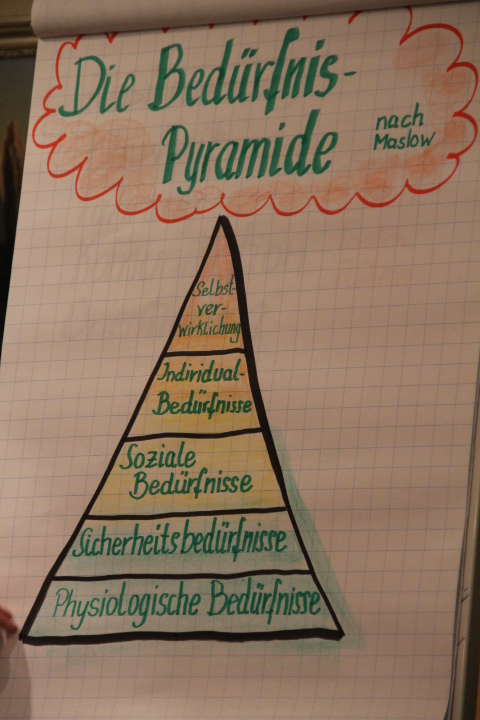 Die Bedürfnis-
Pyramide
nach
Maslow
Selbst-
ver-
wirklichung
Individual-
Bedürfnisse
Soziale
Bedürfnisse
Sicherheitsbedürfnisse
Physiologische Bedürfnisse